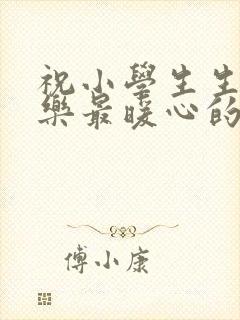 祝小學生生
樂最暖心的
傅小康